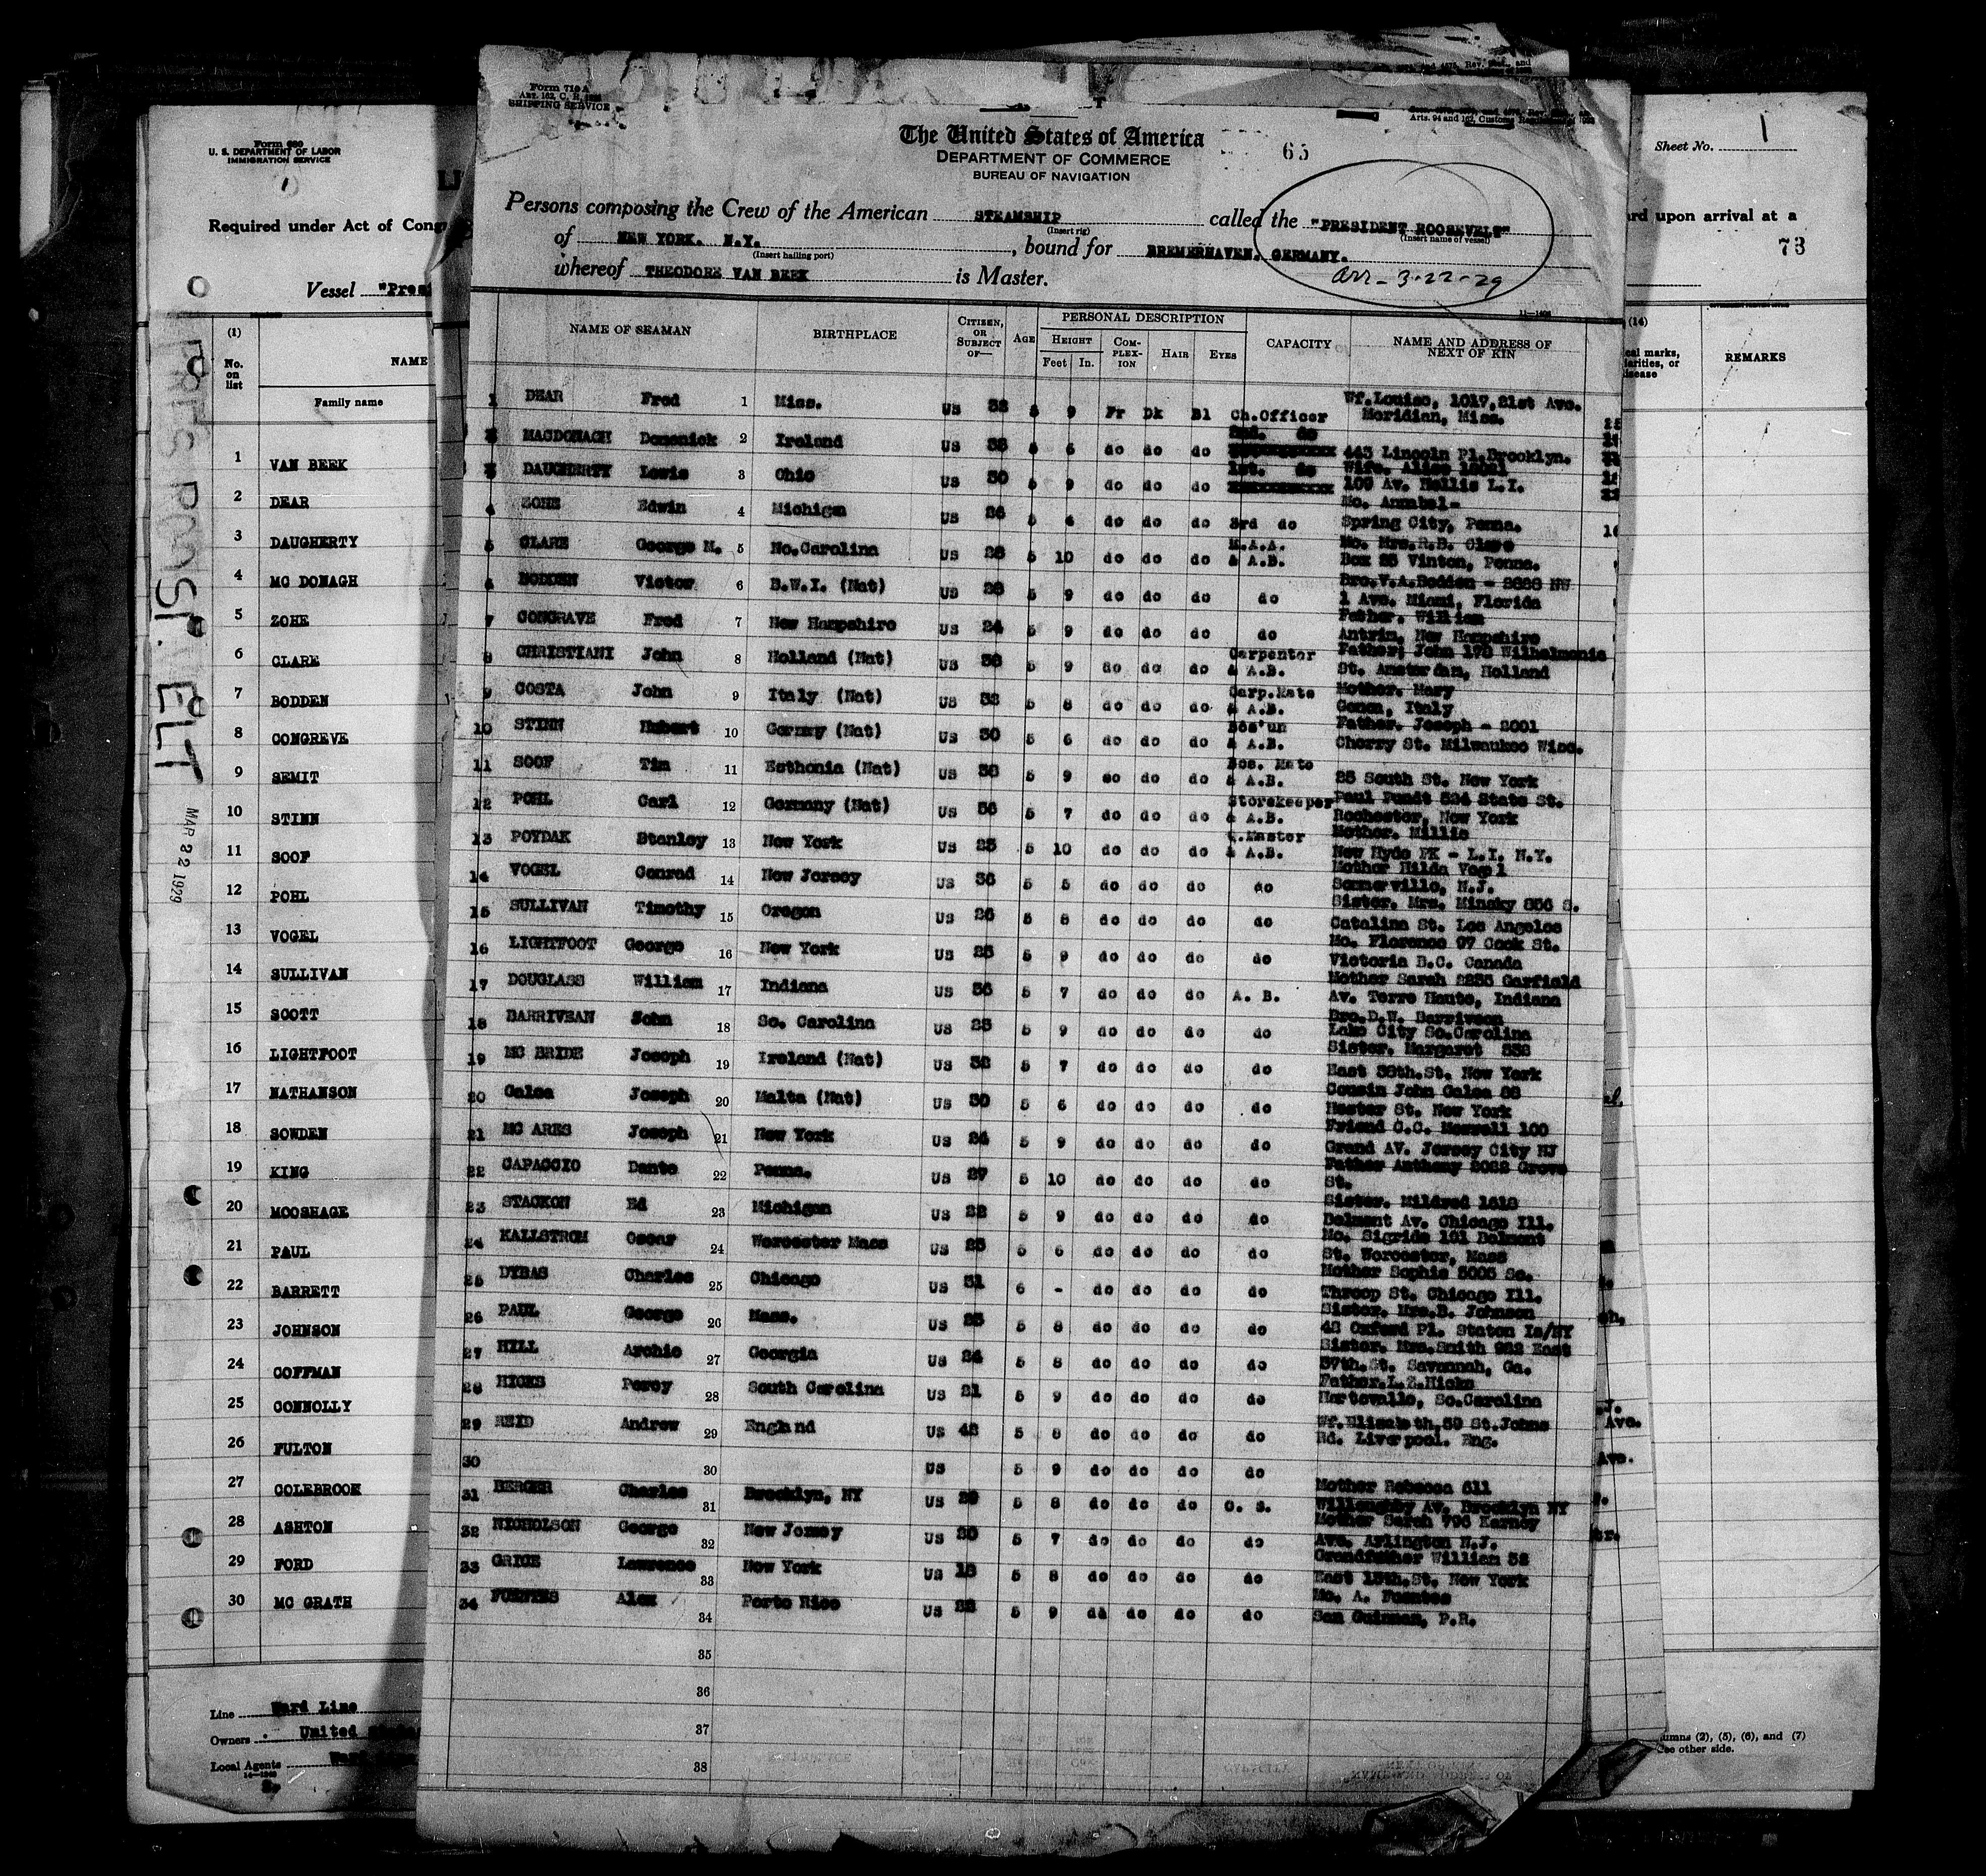 Form 710 A
Art. 162, C. R.
SHIPPING SERVICE
Arts. 94 and 162, Customs
The United States of America
DEPARTMENT OF COMMERCE
BUREAU OF NAVIGATION
65
Persons composing the Crew of the American STEAMSHIP called the "PRESIDENT ROOSEVELT"
(Insert rig) (Insert name of vessel)
of NEW YORK. N.Y. , bound for BREMERHAVEN. GERMANY.
(Insert hailing port)
whereof THEODORE VAN BEEK is Master.
Arr - 3-22-29
NAME OF SEAMAN BIRTHPLACE CITIZEN, OR SUBJECT OF— AGE PERSONAL DESCRIPTION CAPACITY NAME AND ADDRESS OF NEXT OF KIN
HEIGHT COM-PLEX-ION HAIR EYES
Feet In.
1 DEAR Fred 1 Miss. US 5 9 Fr Dk Bl Ch.Officer Wf.Louise, 1017,21st Ave. Meridian, Miss.
2 MACDONAGH Domenick 2 Ireland US 5 6 do do do 2nd. do 443 Lincoln Pl.Brooklyn.
3 DAUGHERTY Lewis 3 Ohio US 30 5 9 do do do 1st. do Wife. Alice 109 Av. Hollis L.I.
4 ZOHE Edwin 4 Michigan US 26 5 6 do do do 3rd do Mo. Annabel- Spring City, Penna.
5 CLARE George M. 5 No.Carolina US 28 5 10 do do do M.A.A. & A.B. Mo. Mrs.R.B. Clare Box 25 Vinton, Penna.
6 BODDEN Victor 6 B.W.I. (Nat) US 28 5 9 do do do do Bro.V.A.Bodden - NW 1 Ave. Miami, Florida
7 CONGRAVE Fred 7 New Hampshire US 24 5 9 do do do do Father. William Antrim, New Hampshire
8 CHRISTIANI John 8 Holland (Nat) US 5 9 do do do Carpenter & A.B. Father; John 170 Wilhelmenia St. Amsterdam, Holland
9 COSTA John 9 Italy (Nat) US 5 8 do do do Carp.Mate & A.B. Mother. Mary Genoa, Italy
10 STINN Hubert 10 Germny (Nat) US 30 5 6 do do do Bos'un & A.B. Father. Joseph - 2001 Cherry St. Milwaukee Wisc.
11 SOOF Tim 11 Esthonia (Nat) US 5 9 do do do Bos. Mate & A.B. 25 South St. New York
12 POHL Carl 12 Germany (Nat) US 36 5 7 do do do Storekeeper & A.B. Paul Pundt 524 State St. Rochester, New York
13 POYDAK Stanley 13 New York US 25 5 10 do do do Q.Master & A.B. Mother. Millie New Hyde PK - L.I. N.Y.
14 VOGEL Conrad 14 New Jersey US 36 5 5 do do do do Mother Hilda Vogel Somerville, N.J.
15 SULLIVAN Timothy 15 Oregon US 26 5 8 do do do do Sister. Mrs. Minsky 856 S. Catalina St. Los Angeles
16 LIGHTFOOT George 16 New York US 25 5 9 do do do do Mo. Florence 97 Cook St. Victoria B.C. Canada
17 DOUGLASS William 17 Indiana US 36 5 7 do do do A. B. Mother Sarah 2235 Garfield Av. Terre Haute, Indiana
18 BARRIVEAN John 18 So. Carolina US 23 5 9 do do do do Bro.D.W. Barrivean Lake City So.Carolina
19 MC BRIDE Joseph 19 Ireland (Nat) US 5 7 do do do do Sister. Margaret East 36th.St. New York
20 Galea Joseph 20 Malta (Nat) US 30 5 6 do do do do Cousin John Galea Hester St. New York
21 MC ARES Joseph 21 New York US 24 5 9 do do do do Friend C.C. Morrell 100 Grand AV. Jersey City NJ
22 CAPACCIO Dante 22 Penna. US 27 5 10 do do do do Father Anthony 2022 Grove St.
23 STACKON Ed 23 Michigan US 22 5 9 do do do do Sister. Mildred 1618 Belmont Av. Chicago Ill.
24 KALLSTROM Oscar 24 Worcester Mass US 23 5 6 do do do do Mo. Sigride 101 Belmont St. Worcester, Mass
25 DYBAS Charles 25 Chicago US 21 6 - do do do do Mother Sophie 5005 So. Throop St. Chicago Ill.
26 PAUL George 26 Mass. US 5 8 do do do do Sister. Mrs.B. Johnson 48 Oxford Pl. Staten Is/NY
27 HILL Archie 27 Georgia US 24 5 8 do do do do Sister. Mrs.Smith 922 East 37th.St. Savannah, Ga.
28 HICKS Percy 28 South Carolina US 21 5 9 do do do do Father.L.Z.Hicks So.Carolina
29 REID Andrew 29 England US 42 5 8 do do do do Wf.Elizabeth,59 St.Johns Rd. Liverpool. Eng.
30 30 US 5 9 do do do do
31 BERGER Charles 31 Brooklyn, NY US 5 8 do do do O. S. Mother Rebecca 611 Willoughby Av. Brooklyn NY
32 NICHOLSON George 32 New Jersey US 20 5 7 do do do do Mother Sarah 796 Kearney Ave. Arlington N.J.
33 GRICE Lawrence 33 New York US 18 5 8 do do do do Grandfather William East 15th.St. New York
34 FUENTES Alex 34 Porto Rico US 5 9 do do do do Mo. A. Fuentes P.R.
35
36
37
38
Form 680
U. S. DEPARTMENT OF LABOR
IMMIGRATION SERVICE
Required under Act of Cong
Vessel "Presi
(1)
No. on list NAME
Family name
1 VAN BEEK
2 DEAR
3 DAUGHERTY
4 MC DONAGH
5 ZOHE
6 CLARE
7 BODDEN
8 CONGREVE
9 SEMIT
10 STINN
11 SOOF
12 POHL
13 VOGEL
14 SULLIVAN
15 SCOTT
16 LIGHTFOOT
17 NATHANSON
18 SOWDEN
19 KING
20 MOOSHAGE
21 PAUL
22 BARRETT
23 JOHNSON
24 COFFMAN
25 CONNOLLY
26 FULTON
27 COLEBROOK
28 ASHTON
29 FORD
30 MC GRATH
Line Ward Line
Owners United
Local Agents
MAR 22 1929
Sheet No. 1
rd upon arrival at a
73
(14)
REMARKS
umns (2), (5), (6), and (7)
see other side.